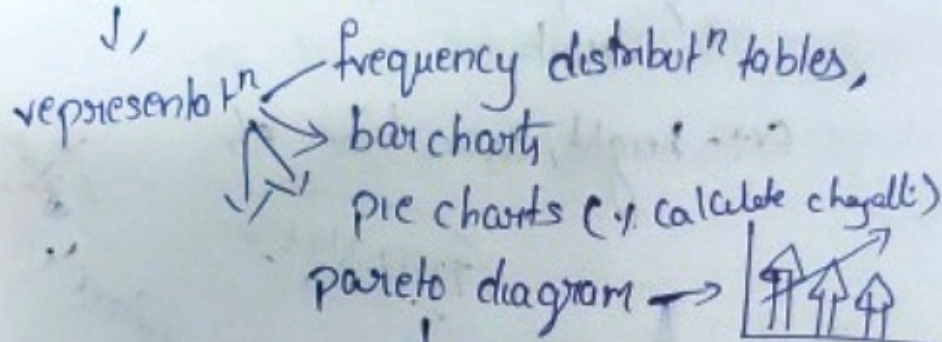 representatⁿ
frequency distributⁿ tables,
bar charts
pie charts (% calculate cheyalli)
pareto diagram